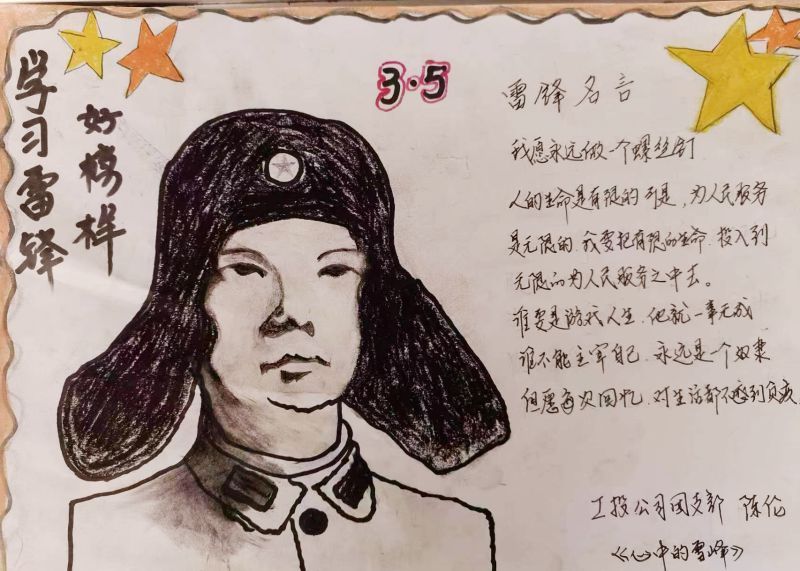 学习雷锋
好榜样
3·5
雷锋名言
我愿永远做一个螺丝钉
人的生命是有限的 可是, 为人民服务
是无限的, 我要把有限的生命, 投入到
无限的为人民服务之中去。
谁要是游戏人生, 他就一事无成
谁不能主宰自己, 永远是一个奴隶
但愿每次回忆, 对生活都不感到负疚
工投公司团支部 陈伦
《心中的雷峰》